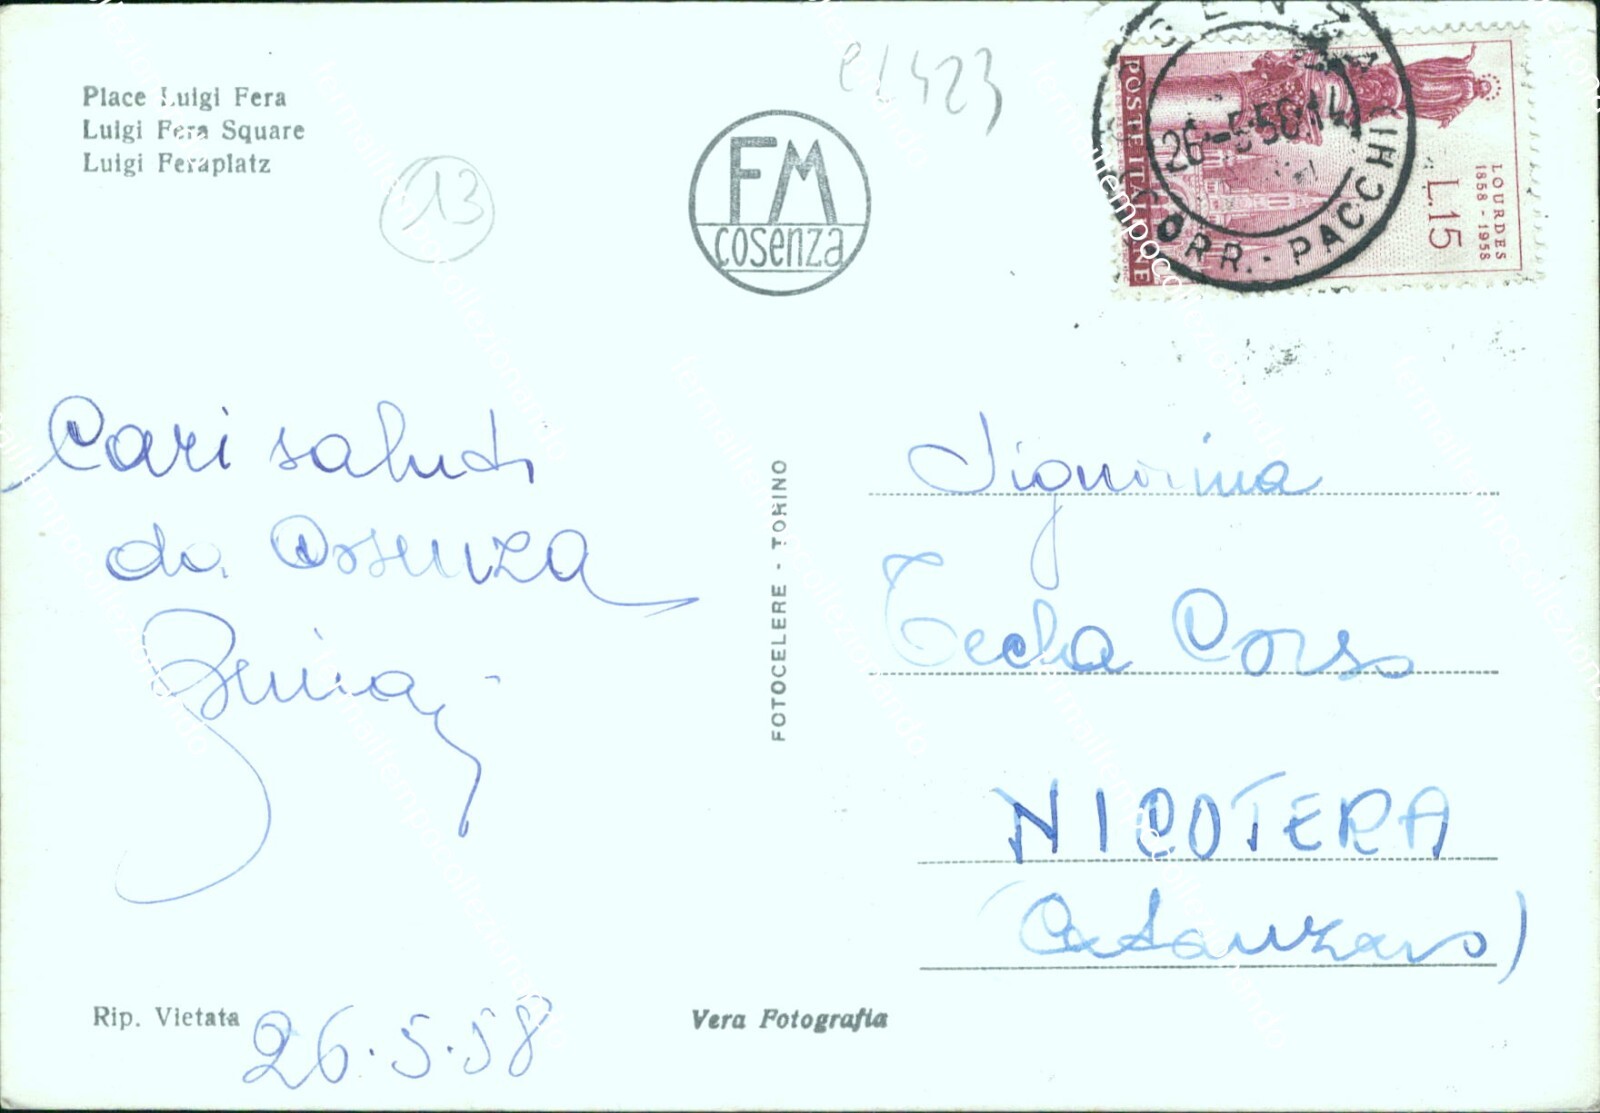 Place Luigi Fera
Luigi Fera Square
Luigi Feraplatz
13
el 423
FM
cosenza
POSTE ITALIANE
LOURDES
1858 - 1958
L.15
26-5-58.14
CORR. - PACCHI
Cari saluti
da Cosenza
FOTOCELERE - TORINO
Signorina
Tecla Corso
NICOTERA
(Catanzaro)
Rip. Vietata
26.5.58
Vera Fotografia